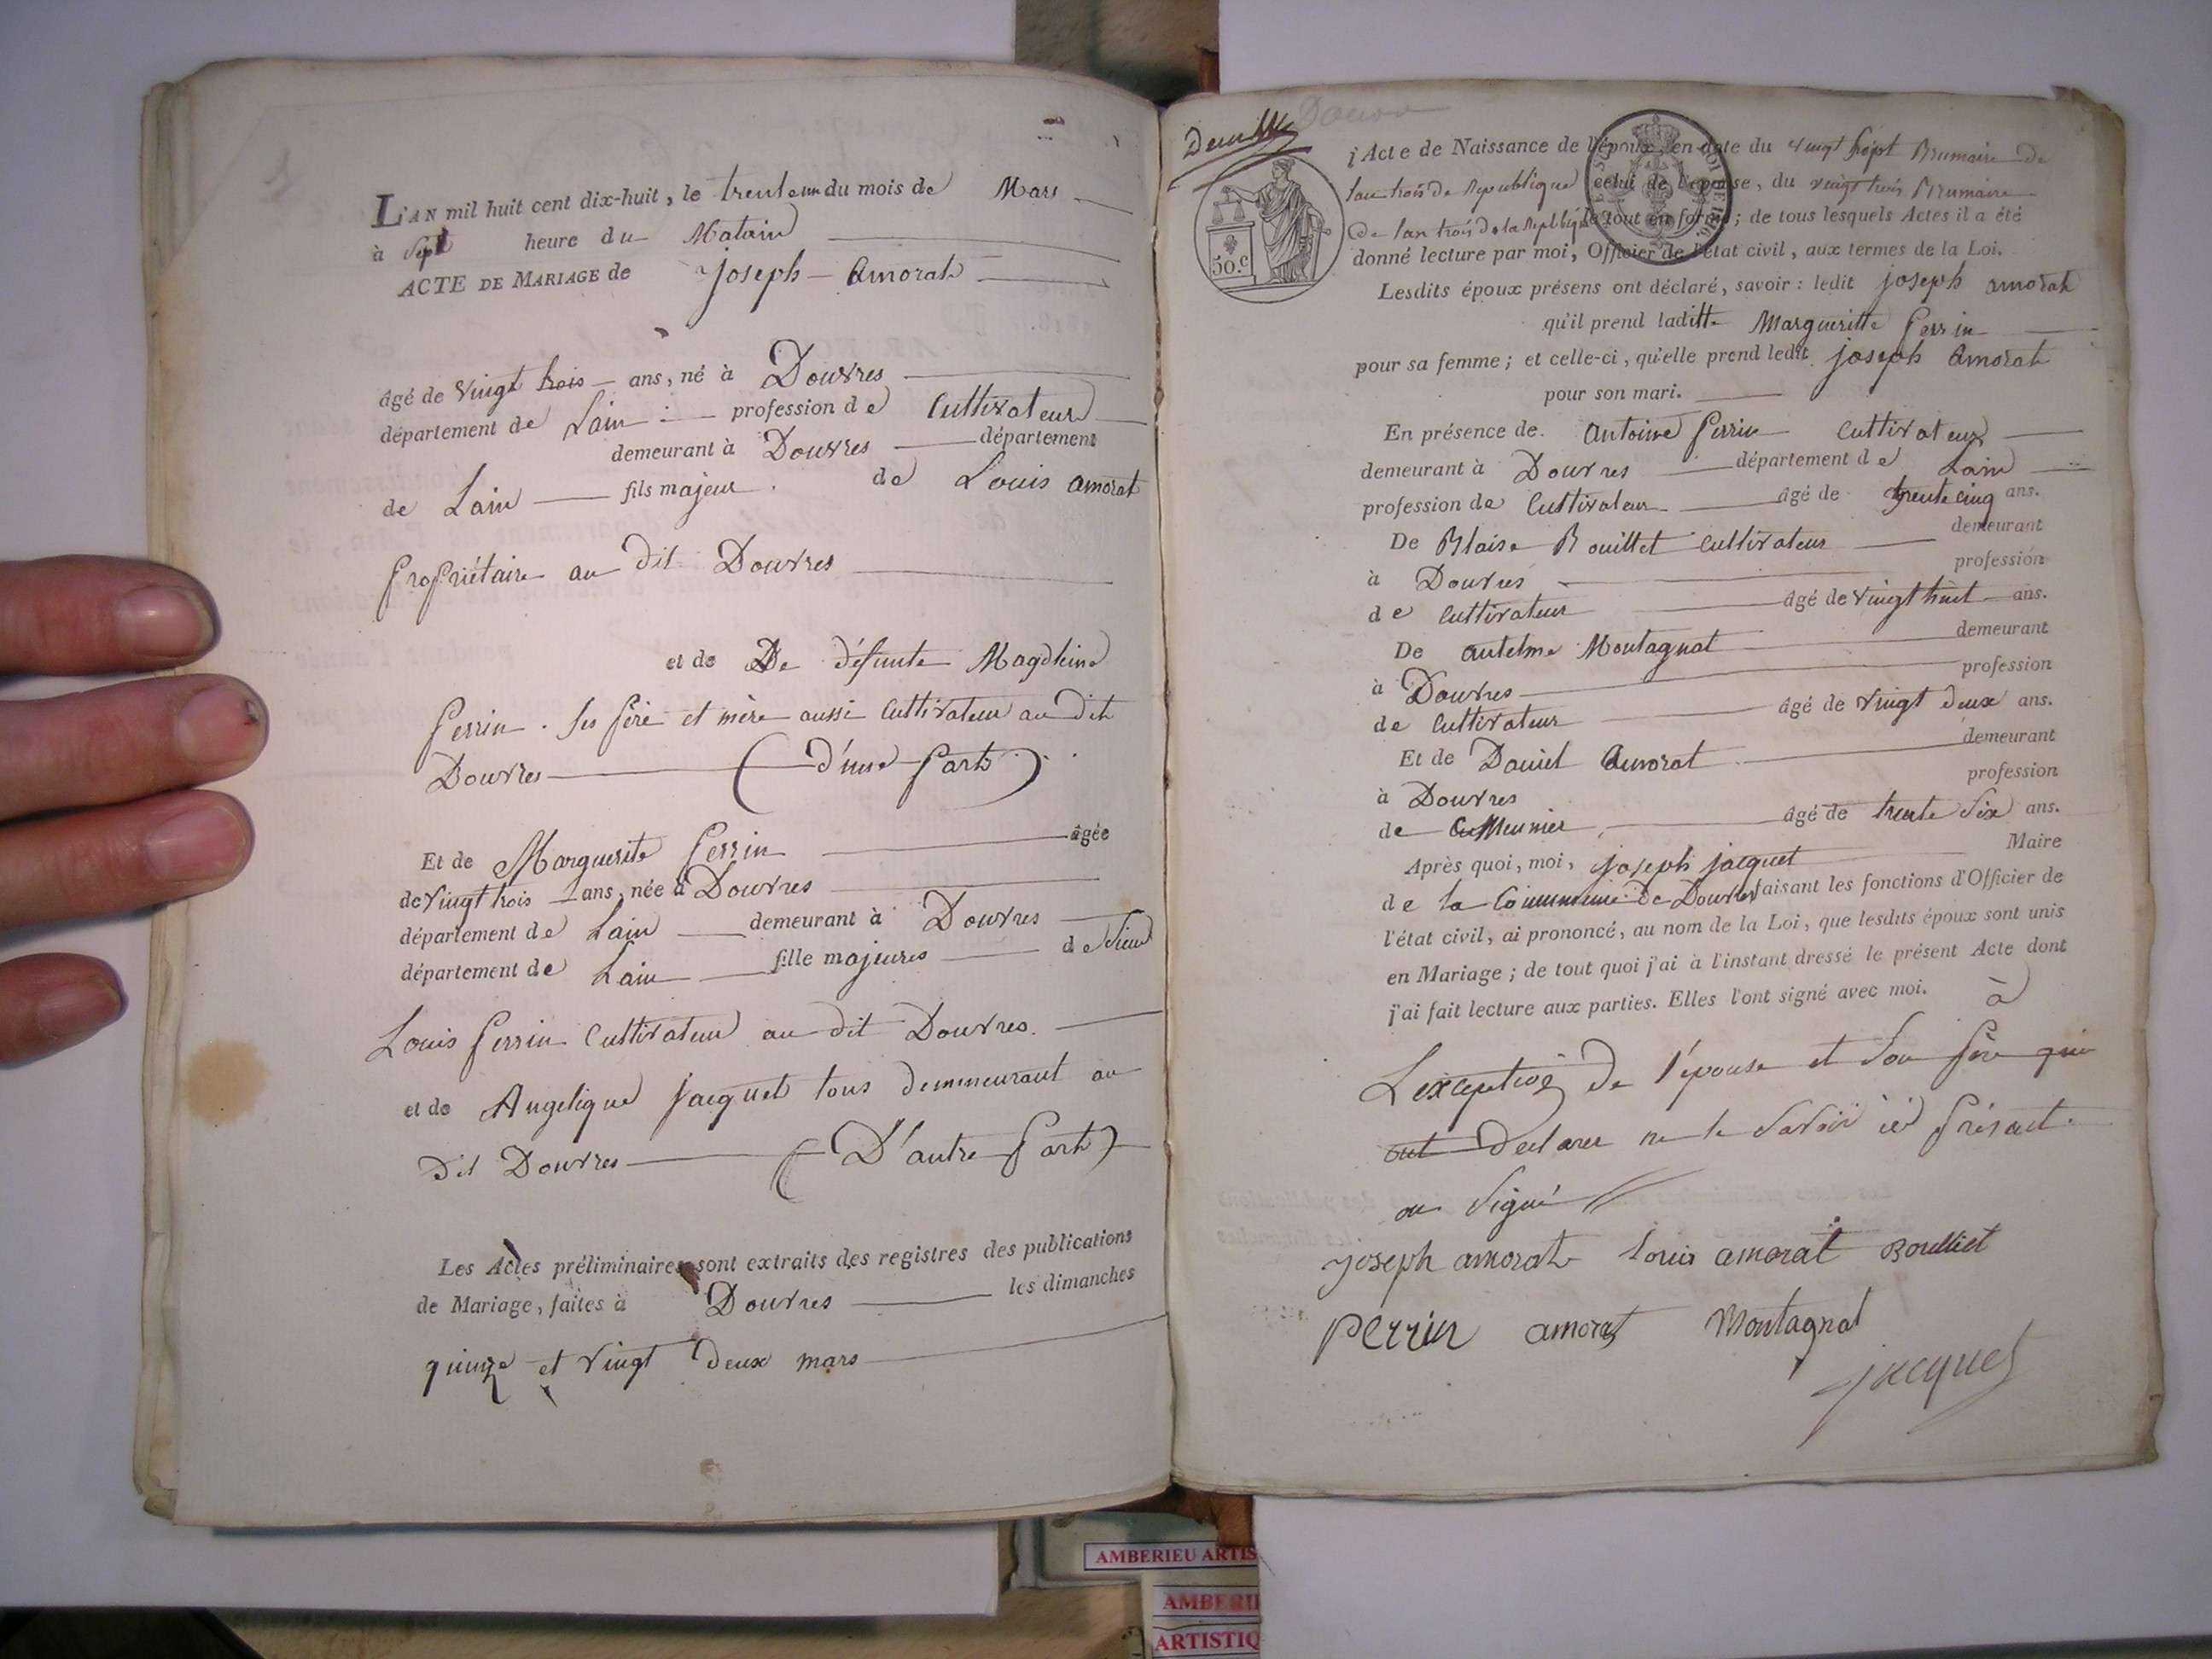 L'AN mil huit cent dix-huit, le trente un du mois de Mars
à Sept heure du Matain
ACTE DE MARIAGE de Joseph Amorat
âgé de vingt trois ans, né à Douvres
département de Lain profession de Cultivateur
demeurant à Douvres département
de Lain fils majeur de Louis amorat
Propriétaire au dit Douvres
et de De défunte Magdleine
Perrin . ses père et mère aussi Cultivateur au dit
Douvres (d'une part)
Et de Marguerite Perrin âgée
de vingt trois ans, née à Douvres
département de Lain demeurant à Douvres
département de Lain fille majeures de Sieur
Louis Perrin Cultivateur au dit Douvres.
et de Angelique Jacquet tous demmeurant au
dit Douvres (D'autre Part)
Les Actes préliminaires sont extraits des registres des publications
de Mariage, faites à Douvres les dimanches
quinze et vingt deux mars
Douvres
50.c
Acte de Naissance de l'époux, en date du vingt sept Brumaire de
lan trois de Republique celui de l'épouse, du vingt trois Brumaire
de lan trois de la Republique le tout en forme; de tous lesquels Actes il a été
donné lecture par moi, Officier de l'état civil, aux termes de la Loi.
Lesdits époux présens ont déclaré, savoir : ledit joseph amorat
qu'il prend laditte Margueritte Perrin
pour sa femme; et celle-ci, qu'elle prend ledit joseph Amorat
pour son mari.
En présence de. Antoine Perrin Cultivateur
demeurant à Douvres département de Lain
profession de Cultivateur âgé de trente cinq ans.
De Blaise Bouillet Cultivateur demeurant
à Douvres profession
de Cultivateur âgé de vingt huit ans.
De antelme Montagnat demeurant
à Douvres profession
de Cultivateur âgé de vingt deux ans.
Et de Daniel Amorat demeurant
à Douvres profession
de Meunier âgé de trente Six ans.
Après quoi, moi, joseph jacquet Maire
de la Commune de Douvres faisant les fonctions d'Officier de
l'état civil, ai prononcé, au nom de la Loi, que lesdits époux sont unis
en Mariage; de tout quoi j'ai à l'instant dressé le présent Acte dont
j'ai fait lecture aux parties. Elles l'ont signé avec moi. à
Lexception de l'épouse et son père qui
ont declarer ne le savoir
ou Signé
joseph amorat louis amorat Bouilliet
perrin amorat Montagnat
jacquet
AMBERIEU ARTIS
AMBERI
ARTISTIQ